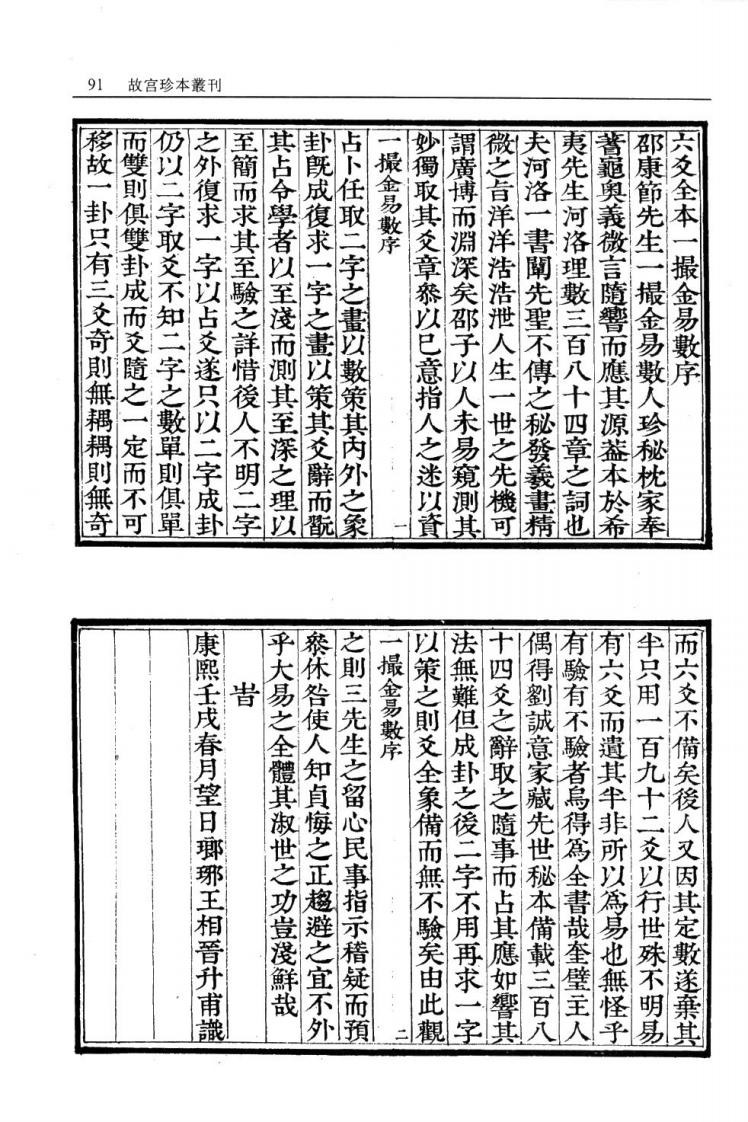 91 故宫珍本叢刊
六爻全本一撮金易數序
邵康節先生一撮金易數人珍秘枕家奉
蓍龜奥義微言隨響而應其源葢本於希
夷先生河洛理數三百八十四章之詞也
夫河洛一書闡先聖不傳之秘發羲畫精
微之旨洋洋浩浩泄人生一世之先機可
謂廣博而淵深矣邵子以人未易窺測其
妙獨取其爻章叅以已意指人之迷以資
一撮金易數序 一
占卜任取二字之畫以數策其内外之象
卦旣成復求一字之畫以策其爻辭而翫
其占令學者以至淺而測其至深之理以
至簡而求其至驗之詳惜後人不明二字
之外復求一字以占爻遂只以二字成卦
仍以二字取爻不知二字之數單則俱單
而雙則俱雙卦成而爻隨之一定而不可
移故一卦只有三爻奇則無耦耦則無奇
而六爻不備矣後人又因其定數遂棄其
半只用一百九十二爻以行世殊不明易
有六爻而遺其半非所以爲易也無怪乎
有驗有不驗者烏得爲全書哉奎璧主人
偶得劉誠意家藏先世秘本備載三百八
十四爻之辭取之隨事而占其應如響其
法無難但成卦之後二字不用再求一字
以策之則爻全象備而無不驗矣由此觀
一撮金易數序 二
之則三先生之留心民事指示稽疑而預
叅休咎使人知貞悔之正趨避之宜不外
乎大易之全體其淑世之功豈淺鮮哉
旹
康熙壬戌春月望日瑯琊王相晉升甫識